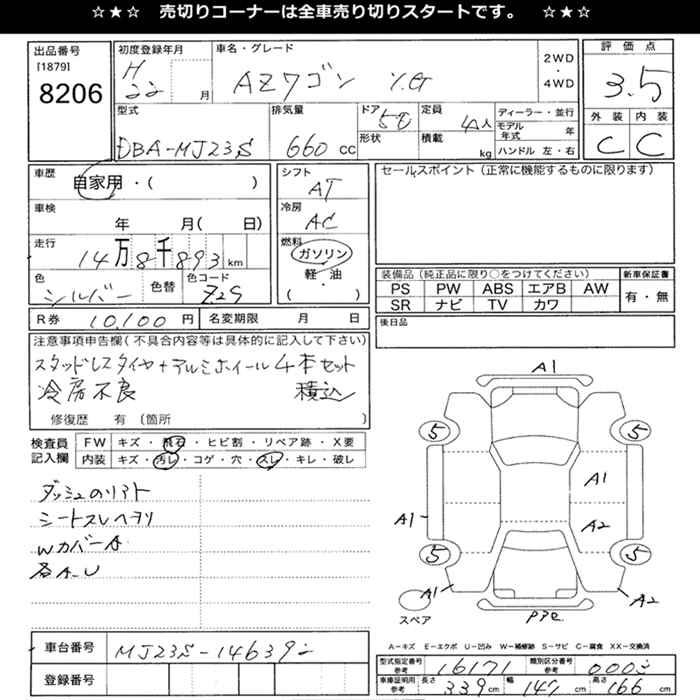 ☆★☆ 売切りコーナーは全車売り切りスタートです。 ☆★☆
出品番号
[1879]
8206
初度登録年月
H
22 月
車名・グレード
AZワゴン
2WD
・
4WD
評価点
3.5
外装 内装
C C
型式
DBA-MJ23S
排気量
660 cc
ドア 5D
形状
定員 4人
積載 kg
ディーラー・並行
モデル年式 年
ハンドル 左・右
車歴
自家用・( )
車検
年 月( 日)
走行
14万8千893 km
色
シルバー
色替
色コード
Z2S
シフト
AT
冷房
AC
燃料
ガソリン
軽・油
( ・ )
セールスポイント(正常に機能するものに限ります)
装備品(純正品に限り○をつけてください) 新車保証書
PS PW ABS エアB AW 有・無
SR ナビ TV カワ
後日品
R券 10,100 円 名変期限 月 日
注意事項申告欄(不具合内容等は具体的に記入して下さい)
スタッドレスタイヤ+アルミホイール4本セット
冷房不良 積込
修復歴 有(箇所 )
検査員
記入欄
FW キズ・飛石・ヒビ割・リペア跡・X要
内装 キズ・汚レ・コゲ・穴・スレ・キレ・破レ
シートスレヘタリ
Wカバー
各A.U
A1
5 5
A1
A1 A2
5 5
A1 A2
スペア
A=キズ E=エクボ U=凹み W=補修跡 S=サビ C=腐食 XX=交換済
車台番号 MJ23S-146392
登録番号
型式指定番号 参考 16171 類別区分番号 参考
車庫証明用 参考 長さ 339 cm 幅 147 cm 高さ 166 cm